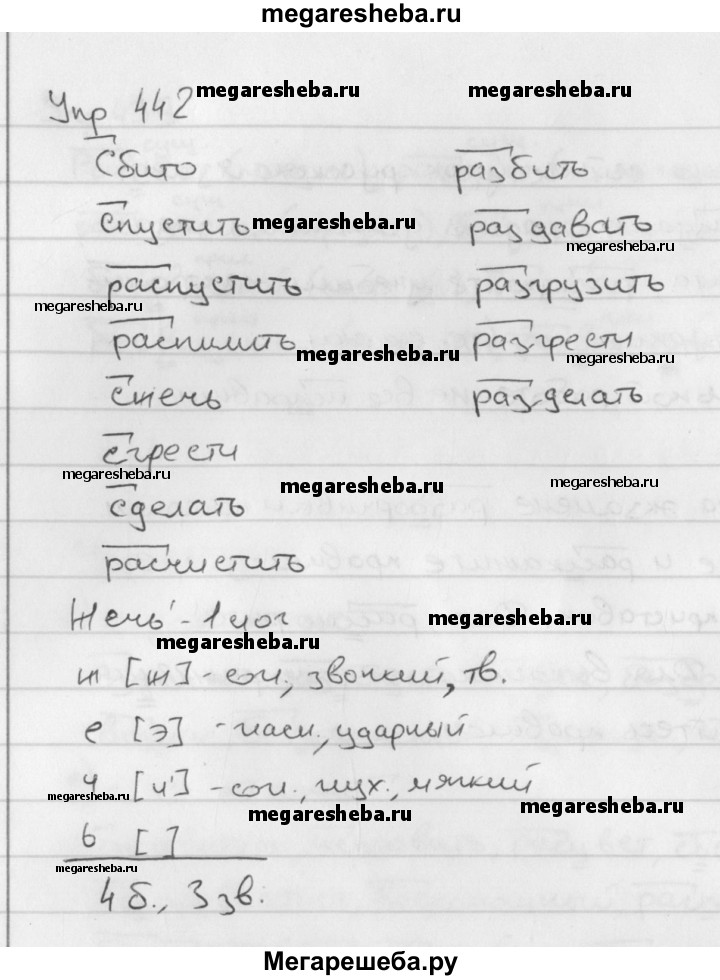 megaresheba.ru
Упр 442 megaresheba.ru megaresheba.ru
Сбито разбить
спустить megaresheba.ru раздавать
megaresheba.ru
распустить разгрузить
megaresheba.ru
распилить megaresheba.ru разгрести
megaresheba.ru
сжечь разделать
сгрести
megaresheba.ru megaresheba.ru
сделать
расчистить
Жечь - 1 слог megaresheba.ru
megaresheba.ru
ж [ж] - согл., звонкий, тв.
е [э] - гласн., ударный
ч [ч'] - согл., глух., мягкий
megaresheba.ru megaresheba.ru
megaresheba.ru
ь [ ]
megaresheba.ru
4 б., 3 зв.
Мегарешеба.ру